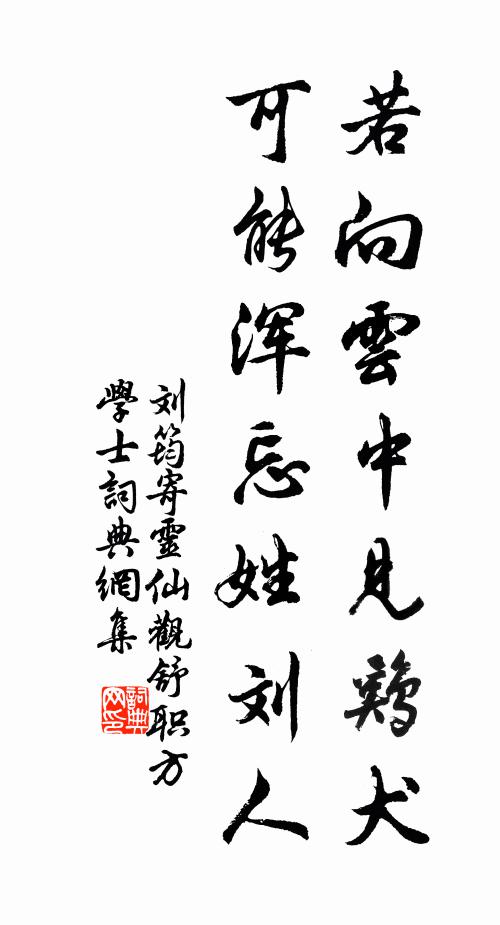 若向雲中見鷄犬
可能浑忘姓刘人
刘筠寄靈仙觀舒职方
學士詞典網集
詞典网印